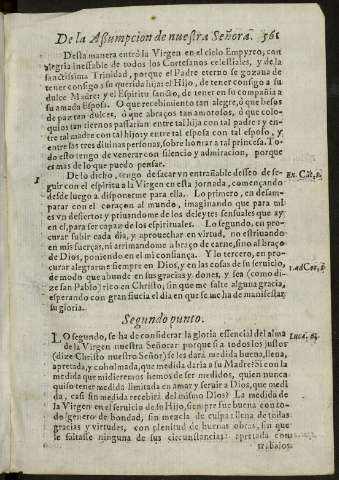 De la Assumpcion de nuestra Señora. 561
Desta manera entrò la Virgen en el cielo Empyreo, con
alegria inefable de todos los Cortesanos celestiales, y de la
sanctissima Trinidad, porque el Padre eterno se gozaua de
tener consigo a su querida hija: el Hijo, de tener consigo a su
dulce Madre: y el Espiritu sancto, de tener en su compañia a
su amada Esposa. O que recebimiento tan alegre, ò que besos
de paz tan dulces, ò que abraços tan amorosos, ò que colo-
quios tan tiernos passarian entre tal hija con tal padre: y en-
tre tal madre con tal hijo: y entre tal esposa con tal esposo, y
entre las tres diuinas personas, sobre honrar a tal princesa. To-
do esto tengo de venerar con silencio y admiracion, porque
es mas de lo que puedo pensar.
1 De lo dicho, tengo de sacar vn entrañable desseo de se-
guir con el espiritu a la Virgen en esta jornada, començando
desde luego a disponerme para ella. Lo primero, en desam-
parar con el coraçon al mundo, imaginando que para mi
es vn desierto: y priuandome de los deleytes sensuales que ay
en el, para ser capaz de los espirituales. Lo segundo, en pro-
curar subir cada dia, y aprouechar en virtud, no estriuando
en mis fuerças, ni arrimandome a braço de carne, sino al braço
de Dios, poniendo en el mi confiança. Y lo tercero, en pro-
curar alegrarme siempre en Dios, y en las cosas de su seruicio,
de modo que abunde en sus gracias y dones, y sea (como di-
ze san Pablo) rico en Christo, sin que me falte alguna gracia,
esperando con gran fiucia el dia en que se me ha de manifestar
su gloria.
Segundo punto.
LO segundo, se ha de considerar la gloria essencial del alma
de la Virgen nuestra Señora: porque si a todos los justos
(dize Christo nuestro Señor) se les darà medida buena, llena,
apretada, y colmada, que medida daria a su Madre? Si con la
medida que midieremos hemos de ser medidos, quien nunca
quiso tener medida limitada en amar y seruir a Dios, que medi
da, casi sin medida recibirà del mismo Dios? La medida de
la Virgen en el seruicio de su Hijo, siempre fue buena con to-
do genero de bondad, sin mezcla de culpa: llena de todas
gracias y virtudes, con plenitud de buenas obras, sin que
le faltasse ninguna de sus circunstancias: apretada con
trabajos